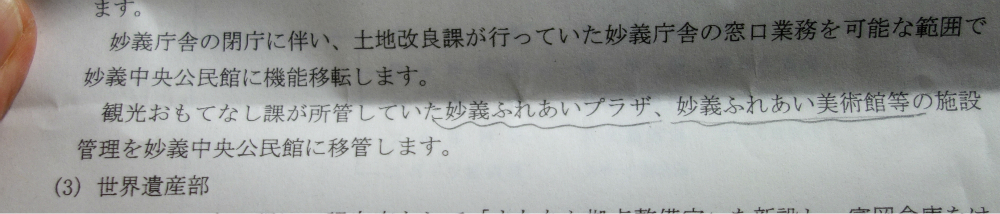 ます。
妙義庁舎の閉庁に伴い、土地改良課が行っていた妙義庁舎の窓口業務を可能な範囲で
妙義中央公民館に機能移転します。
観光おもてなし課が所管していた妙義ふれあいプラザ、妙義ふれあい美術館等の施設
管理を妙義中央公民館に移管します。
(3) 世界遺産部